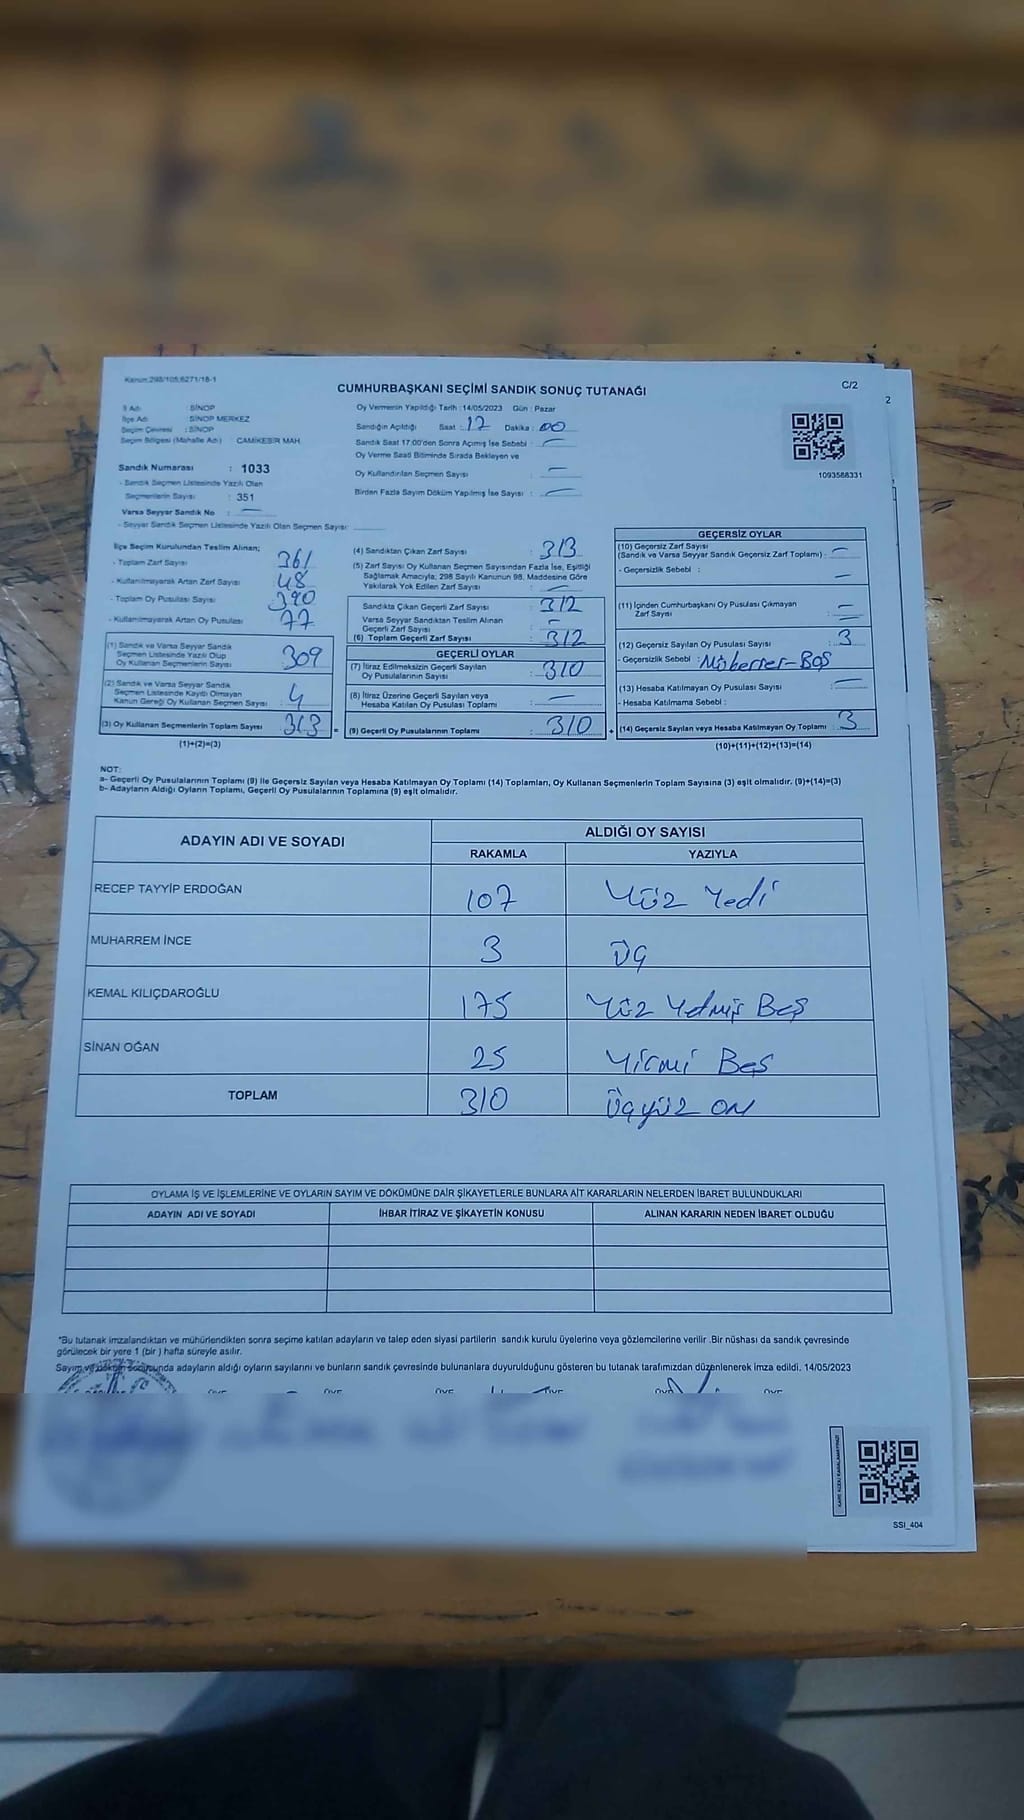 Kanun:298/105;6271/18-1
C/2
2
CUMHURBAŞKANI SEÇİMİ SANDIK SONUÇ TUTANAĞI
İl Adı : SİNOP
İlçe Adı : SİNOP MERKEZ
Seçim Çevresi : SİNOP
Seçim Bölgesi (Mahalle Adı) : CAMİKEBİR MAH.
Sandık Numarası : 1033
- Sandık Seçmen Listesinde Yazılı Olan
Seçmenlerin Sayısı : 351
Varsa Seyyar Sandık No : —
- Seyyar Sandık Seçmen Listesinde Yazılı Olan Seçmen Sayısı:
Oy Vermenin Yapıldığı Tarih :14/05/2023 Gün : Pazar
Sandığın Açıldığı Saat : 17 Dakika : 00
Sandık Saat 17.00'den Sonra Açımış İse Sebebi : —
Oy Verme Saati Bitiminde Sırada Bekleyen ve
Oy Kullandırılan Seçmen Sayısı : —
Birden Fazla Sayım Döküm Yapılmış İse Sayısı : —
1093588331
İlçe Seçim Kurulundan Teslim Alınan;
- Toplam Zarf Sayısı : 361
- Kullanılmayarak Artan Zarf Sayısı : 48
- Toplam Oy Pusulası Sayısı : 390
- Kullanılmayarak Artan Oy Pusulası : 77
(1) Sandık ve Varsa Seyyar Sandık
Seçmen Listesinde Yazılı Olup
Oy Kullanan Seçmenlerin Sayısı : 309
(2) Sandık ve Varsa Seyyar Sandık
Seçmen Listesinde Kayıtlı Olmayan
Kanun Gereği Oy Kullanan Seçmen Sayısı : 4
(3) Oy Kullanan Seçmenlerin Toplam Sayısı : 313
(1)+(2)=(3)
(4) Sandıktan Çıkan Zarf Sayısı : 313
(5) Zarf Sayısı Oy Kullanan Seçmen Sayısından Fazla İse, Eşitliği
Sağlamak Amacıyla; 298 Sayılı Kanunun 98. Maddesine Göre
Yakılarak Yok Edilen Zarf Sayısı : —
Sandıkta Çıkan Geçerli Zarf Sayısı : 312
Varsa Seyyar Sandıktan Teslim Alınan
Geçerli Zarf Sayısı : —
(6) Toplam Geçerli Zarf Sayısı : 312
GEÇERLİ OYLAR
(7) İtiraz Edilmeksizin Geçerli Sayılan
Oy Pusulalarının Sayısı : 310
(8) İtiraz Üzerine Geçerli Sayılan veya
Hesaba Katılan Oy Pusulası Toplamı : —
= (9) Geçerli Oy Pusulalarının Toplamı : 310
GEÇERSİZ OYLAR
(10) Geçersiz Zarf Sayısı
(Sandık ve Varsa Seyyar Sandık Geçersiz Zarf Toplamı) : —
- Geçersizlik Sebebi : —
(11) İçinden Cumhurbaşkanı Oy Pusulası Çıkmayan
Zarf Sayısı : —
(12) Geçersiz Sayılan Oy Pusulası Sayısı : 3
- Geçersizlik Sebebi : Mükerrer-Boş
(13) Hesaba Katılmayan Oy Pusulası Sayısı : —
- Hesaba Katılmama Sebebi :
+ (14) Geçersiz Sayılan veya Hesaba Katılmayan Oy Toplamı : 3
(10)+(11)+(12)+(13)=(14)
NOT:
a- Geçerli Oy Pusulalarının Toplamı (9) ile Geçersiz Sayılan veya Hesaba Katılmayan Oy Toplamı (14) Toplamları, Oy Kullanan Seçmenlerin Toplam Sayısına (3) eşit olmalıdır. (9)+(14)=(3)
b- Adayların Aldığı Oyların Toplamı, Geçerli Oy Pusulalarının Toplamına (9) eşit olmalıdır.
ADAYIN ADI VE SOYADI
ALDIĞI OY SAYISI
RAKAMLA YAZIYLA
RECEP TAYYİP ERDOĞAN 107 Yüz Yedi
MUHARREM İNCE 3 Üç
KEMAL KILIÇDAROĞLU 175 Yüz Yetmiş Beş
SİNAN OĞAN 25 Yirmi Beş
TOPLAM 310 Üçyüz on
OYLAMA İŞ VE İŞLEMLERİNE VE OYLARIN SAYIM VE DÖKÜMÜNE DAİR ŞİKAYETLERLE BUNLARA AİT KARARLARIN NELERDEN İBARET BULUNDUKLARI
ADAYIN ADI VE SOYADI İHBAR İTİRAZ VE ŞİKAYETİN KONUSU ALINAN KARARIN NEDEN İBARET OLDUĞU
*Bu tutanak imzalandıktan ve mühürlendikten sonra seçime katılan adayların ve talep eden siyasi partilerin sandık kurulu üyelerine veya gözlemcilerine verilir .Bir nüshası da sandık çevresinde
görülecek bir yere 1 (bir ) hafta süreyle asılır.
Sayım ve döküm sonunda adayların aldığı oyların sayılarını ve bunların sandık çevresinde bulunanlara duyurulduğunu gösteren bu tutanak tarafımızdan düzenlenerek imza edildi. 14/05/2023
ÜYE ÜYE ÜYE ÜYE ÜYE
SSİ_404